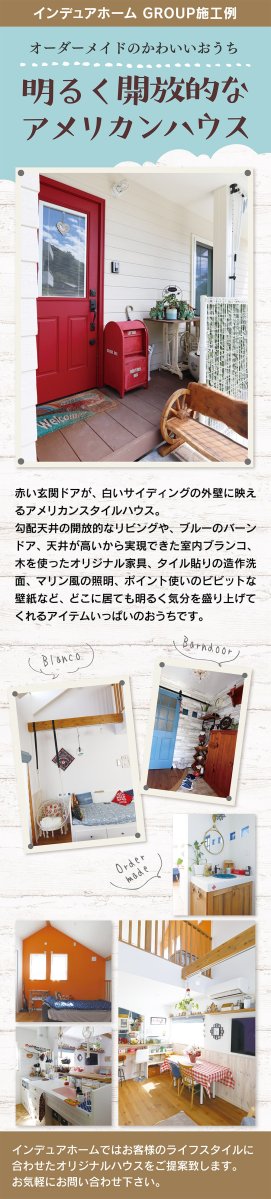 インデュアホーム GROUP施工例
オーダーメイドのかわいいおうち
明るく開放的な
アメリカンハウス
赤い玄関ドアが、白いサイディングの外壁に映え
るアメリカンスタイルハウス。
勾配天井の開放的なリビングや、ブルーのバーン
ドア、天井が高いから実現できた室内ブランコ、
木を使ったオリジナル家具、タイル貼りの造作洗
面、マリン風の照明、ポイント使いのビビットな
壁紙など、どこに居ても明るく気分を盛り上げて
くれるアイテムいっぱいのおうちです。
Blanco
Barndoor
Order
made
インデュアホームではお客様のライフスタイルに
合わせたオリジナルハウスをご提案致します。
お気軽にお問い合わせ下さい。